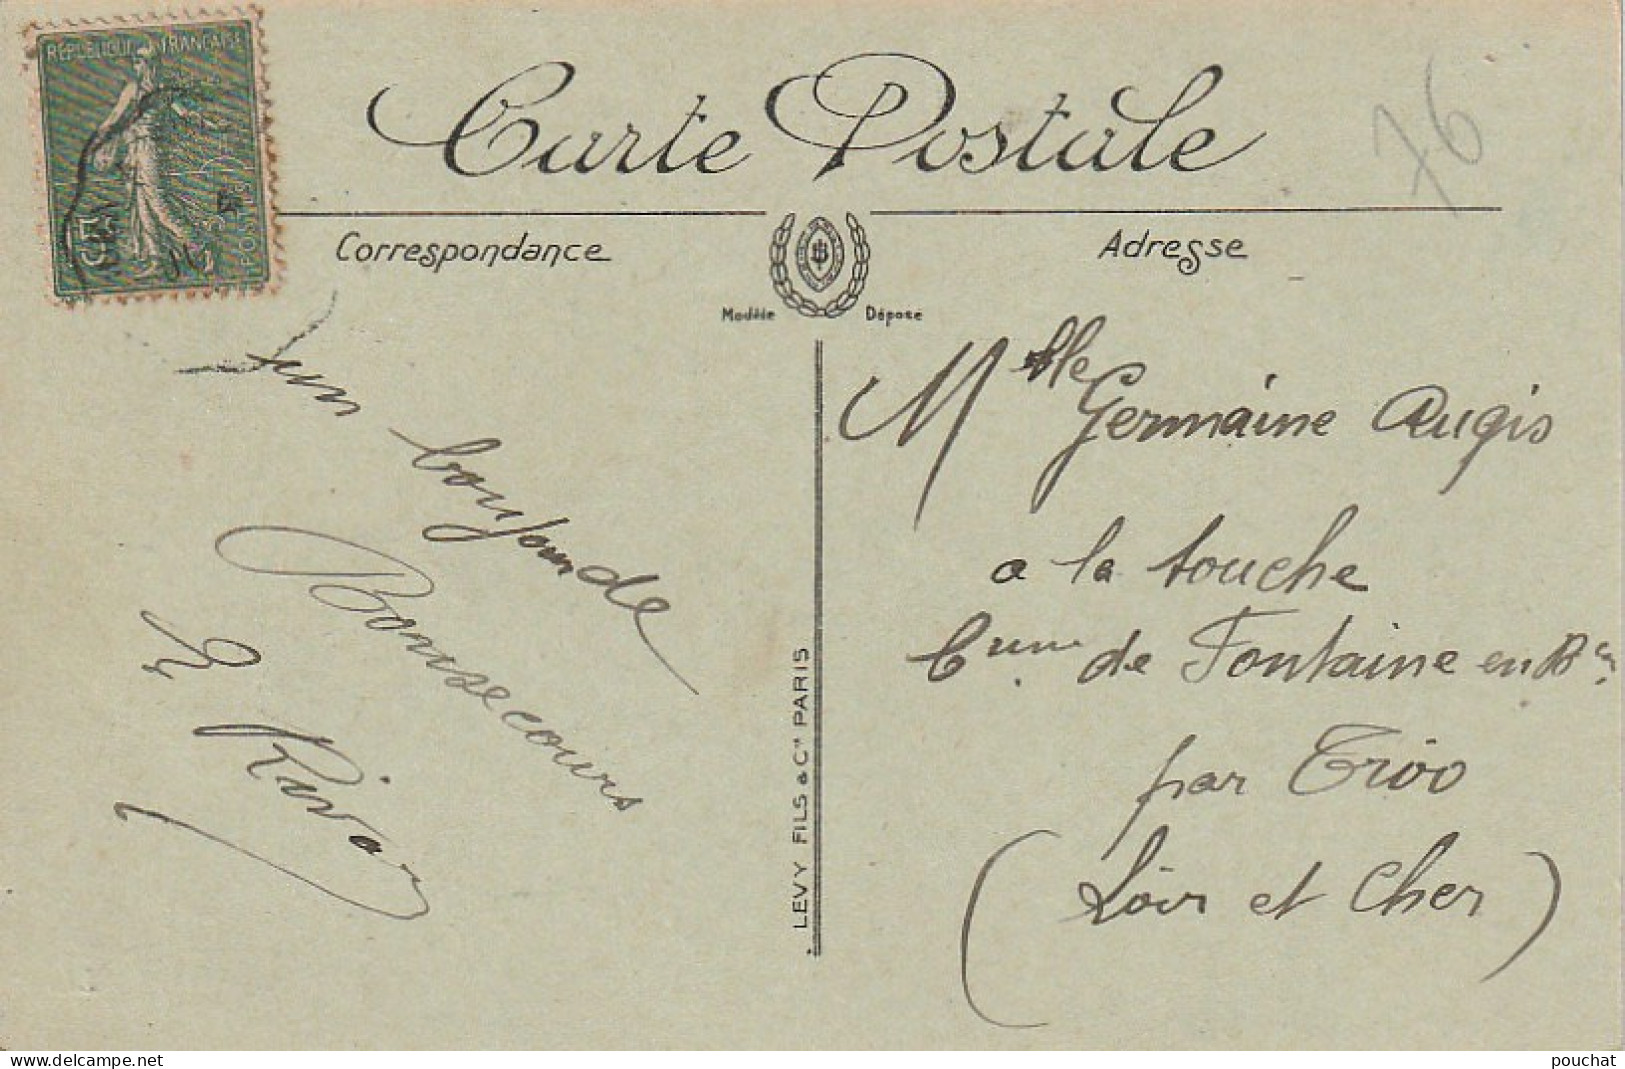 RÉPUBLIQUE FRANÇAISE
15
POSTES
Carte Postale
76
Correspondance
Adresse
Modèle Déposé
un
bonjour de
Bonsecours
Mlle Germaine Augis
a la touche
Cune de Fontaine en Bce
par Tróo
(Loir et Cher)
LEVY FILS & Cie PARIS
https://www.delcampe.net
pouchat